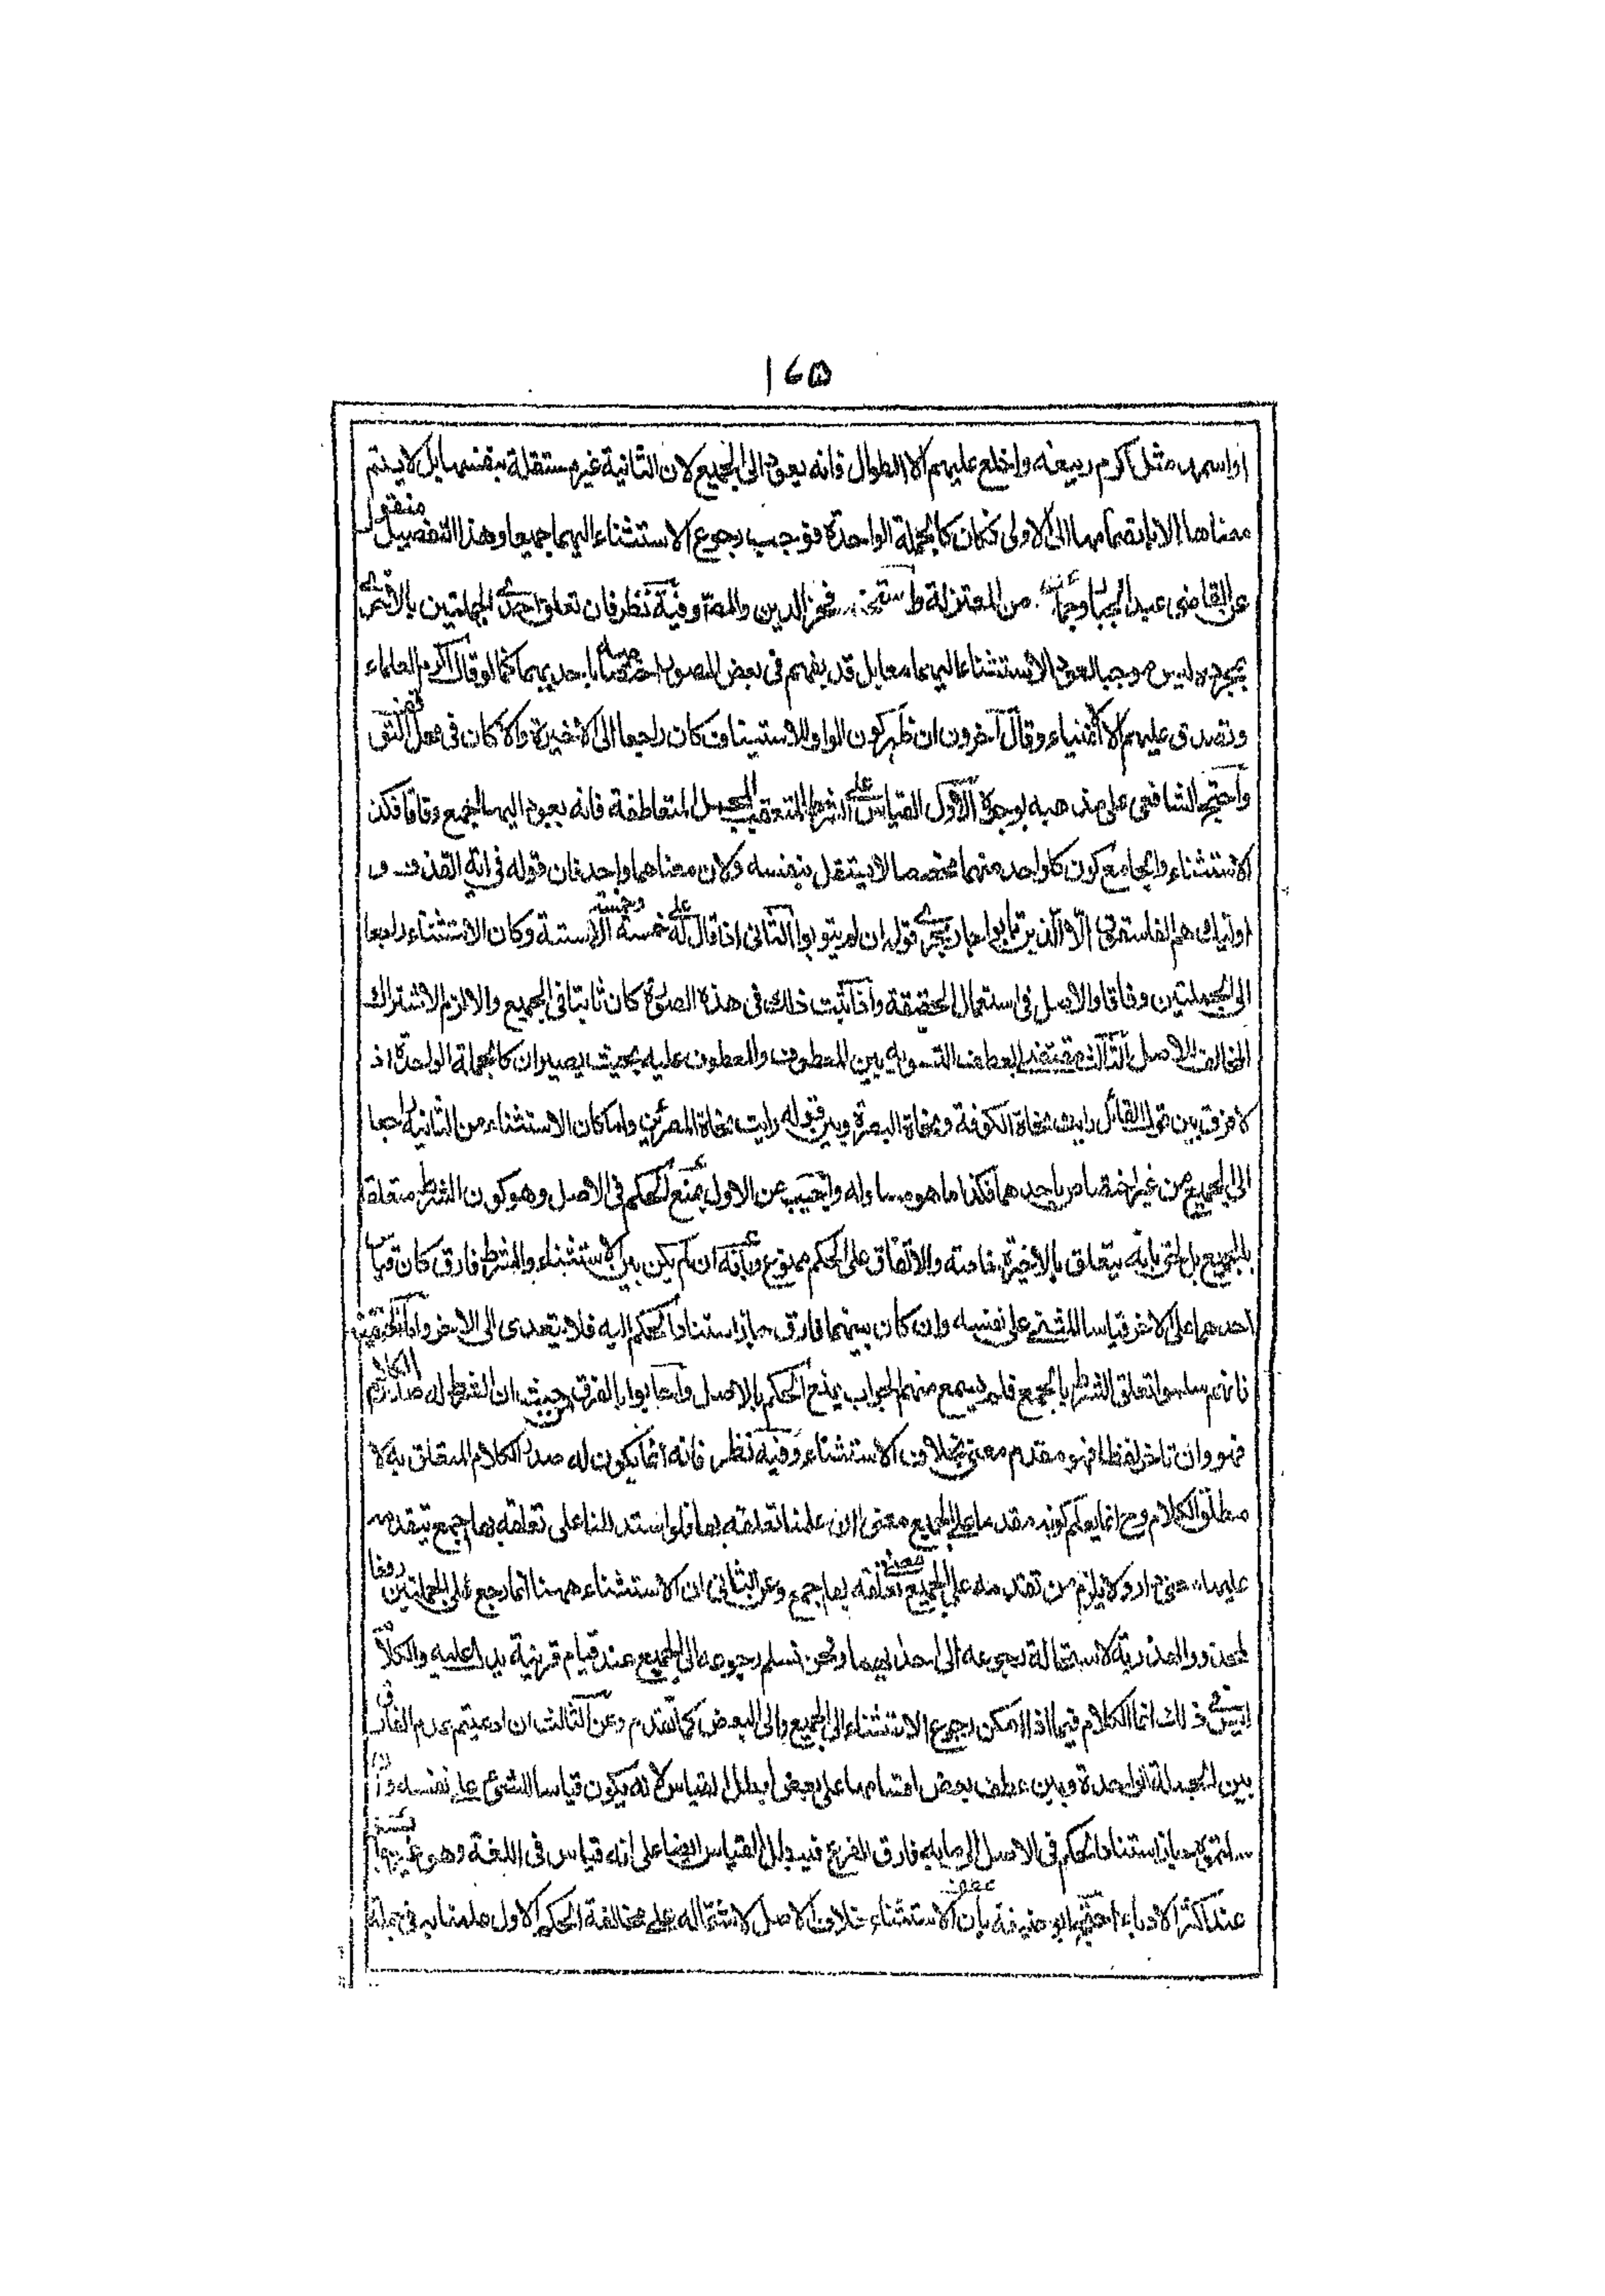 ١٦٥
او اسمها مثل اكرم ربيعة واخلع عليهم الا الطوال فانه يعود الى الجميع لان الثانية غير مستقلة بنفسها بل لا يتم
معناها الا بانضمامها الى الاولى فكان كالجملة الواحدة فوجب رجوع الاستثناء اليهما جميعا وهذا التفصيل منقول
عن القاضى عبد الجبار وجماعة من المعتزلة واستحسنه فخر الدين والمصّ وفيه نظر فان تعلق احدى الجملتين بالاخرى
بمجرده ليس موجبا لعود الاستثناء اليهما معا بل قد يفهم فى بعض الصور اختصاصه باحديهما كما لو قال اكرم العلماء
وتصدق عليهم الا الاغنياء وقال آخرون ان ظهر كون الواو للاستيناف كان راجعا الى الاخيرة والا كان فى محل التوقف
واحتج الشافعى على مذهبه بوجوه الاول القياس على الشرط المتعقب للجمل المتعاطفة فانه يعود اليها اجمع وفاقا فكذا
الاستثناء والجامع كون كل واحد منهما مخصصا لا يستقل بنفسه ولان معناهما واحد فان قوله فى اية القذف و
اولئك هم الفاسقون الا الذين تابوا جار مجرى قوله ان لم يتوبوا الثانى اذا قال له على خمسة وخمسة الا ستة وكان الاستثناء راجعا
الى الجملتين وفاقا والاصل فى استعمال الحقيقة واذا ثبت ذلك فى هذه الصورة كان ثابتا فى الجميع والا لزم الاشتراك
المخالف للاصل الثالث مقتضى العطف التسوية بين المعطوف والمعطوف عليه بحيث يصيران كالجملة الواحدة اذ
لا فرق بين قول القائل رايت نحاة الكوفة ونحاة البصرة وبين قوله رايت نحاة المصرين ولما كان الاستثناء من الثانية راجعا
الى الجميع من غير اختصاص باحدهما فكذا ما هو مساو له واجيب عن الاول بمنع الحكم فى الاصل وهو كون الشرط متعلقا
بالجميع بل الحق بانه يتعلق بالاخيرة خاصة والاتفاق على الحكم ممنوع وبانه ان لم يكن بين الاستثناء والشرط فارق كان قياس
احدهما على الاخر قياسا للشئ على نفسه وان كان بينهما فارق جاز استناد الحكم اليه فلا يتعدى الى الاخر واما الحنفية
فانهم سلموا تعلق الشرط بالجميع فلم يسمع منهم الجواب بمنع الحكم بالاصل واجابوا بالفرق من حيث ان الشرط له صدر الكلام
فهو وان تاخر لفظا فهو مقدم معنى بخلاف الاستثناء وفيه نظر فانه انما يكون له صدر الكلام المتعلق به لا
مطلق الكلام وح انما يعلم كونه مقدما على الجميع معنى ان علمنا تعلقه بها فلو استدللنا على تعلقه بها جمع بتقدمه
عليها معنى دار ولا يلزم من تقدمه على الجميع معنى تعلقه بها جمع وعن الثانى ان الاستثناء ههنا انما رجع الى الجملتين دفعا
لاستحالة رجوعه الى احديهما ونحن نسلم رجوعه الى الجميع عند قيام قرينة يدل عليه والكلام
ليس فى ذلك انما الكلام فيما اذا امكن رجوع الاستثناء الى الجميع والى البعض كما تقدم وعن الثالث ان ادعيتم عدم الفارق
بين الجملة الواحدة وبين عطف بعض اقسامها على بعض بطل القياس لانه يكون قياسا للشئ على نفسه وان
جاز استناد الحكم فى الاصل الى ما به فارق الفرع فيبطل القياس ايضا على انه قياس فى اللغة وهو غير
عند اكثر الادباء احتج ابو حنيفة بان الاستثناء خلاف الاصل لاشتماله على مخالفة الحكم الاول عملنا به فى جملة